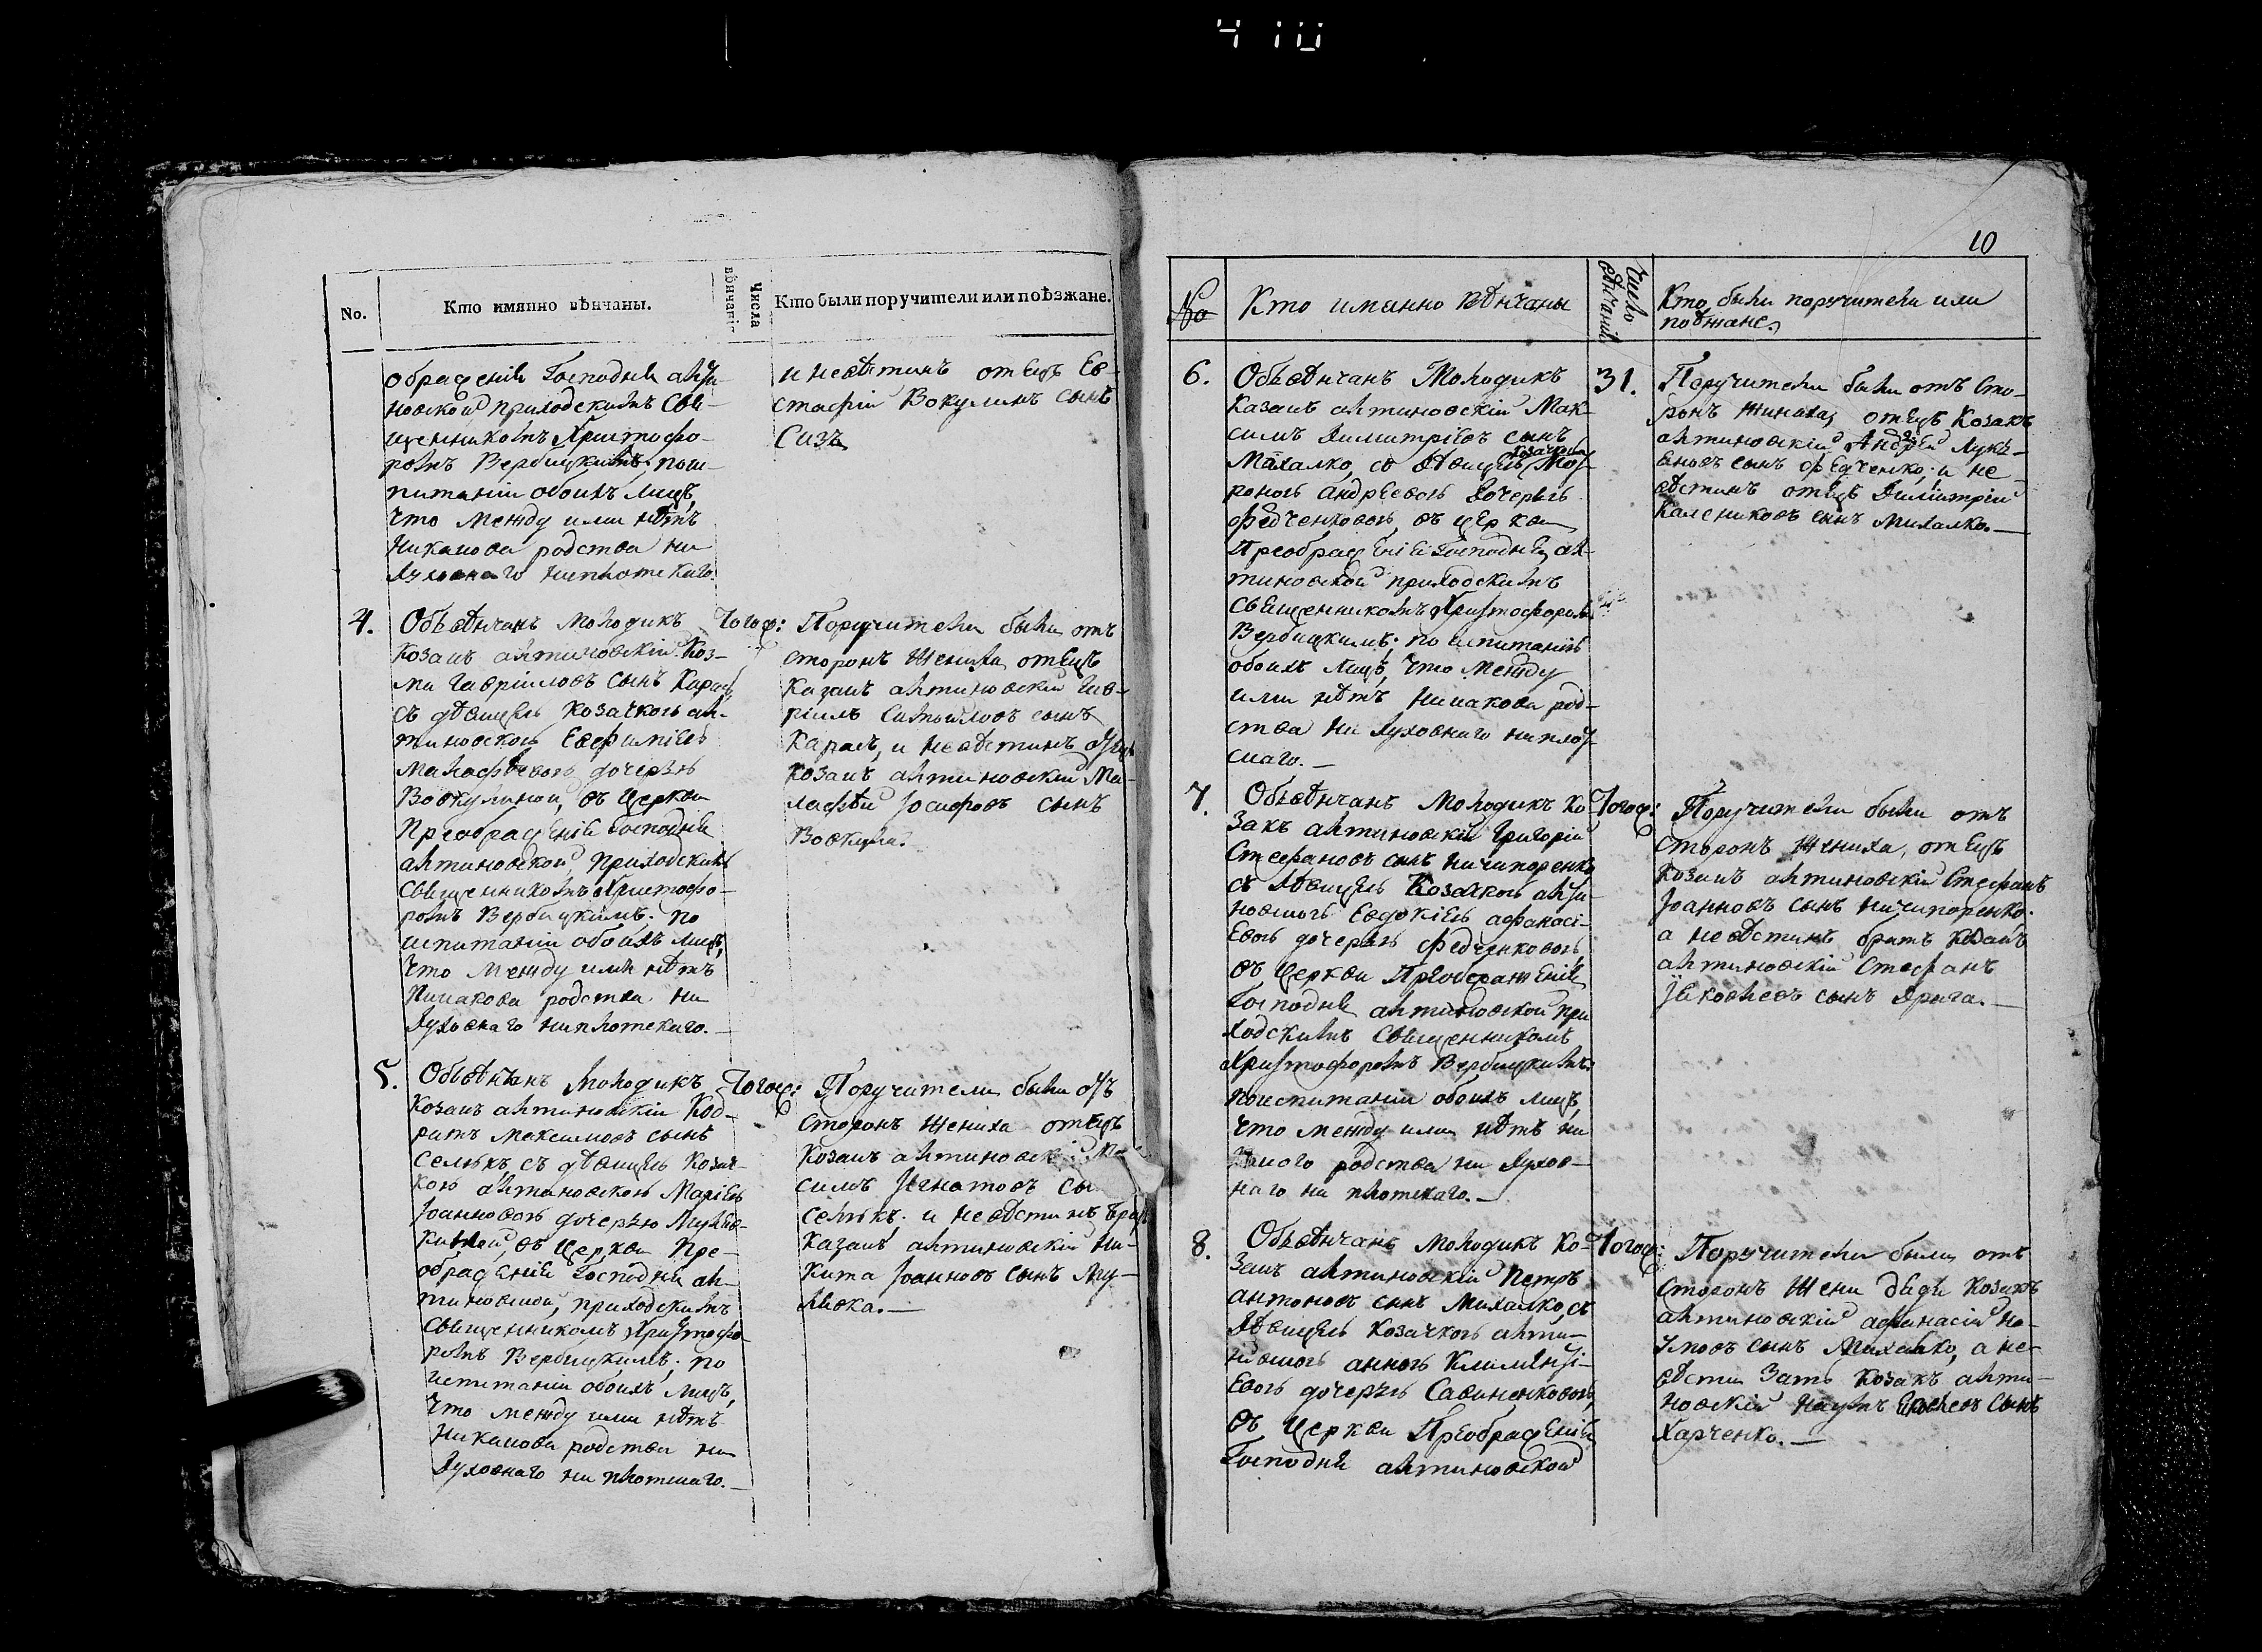 410
No.
Кто имянно вѣнчаны.
Числа
вѣнчанія
Кто были поручители или поѣзжане.
ображенія Господня алти-
новской приходскимъ Свя-
щенникомъ Христофо-
ромъ Вербицкимъ. поис-
питаніи обоихъ лицъ,
что между ими нѣтъ
никакова родства ни
духовнаго ниплотскаго.
и невѣстинъ отецъ Ев-
стафій Вокулинъ сынъ
Сизъ
4.
Обвѣнчанъ молодикъ
козакъ алтиновскій Коз-
ма Гавріиловъ сынъ Карась
съ дѣвицею козачкою ал-
тиновскою Евфиміею
Малафѣевою дочерью
Вовкулиной, въ Церкви
Преображенія Господня
алтиновской, приходскимъ
священникомъ Христофо-
ромъ Вербицкимъ. по
испитаніи обоихъ лицъ,
что между ими нѣтъ
никакова родства ни
духовнаго ниплотскаго.—
Тогож:
Поручители были отъ
сторонъ жениха отецъ
казакъ алтиновскій Гав-
ріилъ сынъ
Карась, и невѣстинъ отецъ
козакъ алтиновскій Ма-
лафѣй Іосифовъ сынъ
Вовкула.
5.
Обвѣнчанъ молодикъ
козакъ алтиновскій Код-
ратъ Максимовъ сынъ
Селюкъ, съ дѣвицею козач-
кою алтиновскою Маріею
Іоанновою дочерью
въ Церкви Пре-
ображенія Господня ал-
тиновской, приходскимъ
священникомъ Христофо-
ромъ Вербицкимъ. по
испитаніи обоихъ лицъ,
что между ими нѣтъ
никакова родства ни
духовнаго ни плотскаго.—
Тогож:
Поручители были отъ
сторонъ жениха отецъ
козакъ алтиновскій Мак-
симъ Игнатовъ сынъ
Селюкъ. и невѣстинъ братъ
казакъ алтиновскій Ни-
кита Іоанновъ сынъ
10
No
Кто иманно вѣнчаны
Число
вѣнчанія
Кто были поручители или
поѣжане.
6.
Обвѣнчанъ Молодикъ
Казакъ алтиновскій Мак-
симъ Димитріевъ сынъ
Михалко, съ дѣвицею козачкою Мот-
роною андреевою дочерью
Федченковою, въ церкви
Преображенія Господня, ал-
тиновской приходскимъ
священникомъ Христофоромъ
Вербицкимъ; по испитаніи
обоихъ лицъ, что между
ими нѣтъ никакова род-
ства ни духовнаго ни плот-
скаго.—
31.
Поручители были отъ сто-
ронъ жениха, отецъ Козакъ
алтиновскій Андрей Лукя-
новъ сынъ Федченко, и не-
вѣстинъ отецъ Димитрій
Калениковъ сынъ Михалко.—
7.
Обвѣнчанъ молодикъ ко-
закъ алтиновскій Григорій
Стефановъ сынъ Ничипоренко
съ дѣвицею Козачкою алти-
новскою Евдокіею афанасі-
евою дочерью Федченковою,
въ церкви Преображенія
Господня алтиновской при-
ходскимъ священникомъ
Христофоромъ Вербицкимъ:
поиспитаніи обоихъ лицъ,
что между ими нѣтъ ни
какого родства ни духов-
наго ни плотскаго.—
Тогож:
Поручители были отъ
сторонъ жениха, отецъ
козакъ алтиновскій Стефанъ
Іоанновъ сынъ Ничипоренко.
а невѣстинъ братъ козакъ
алтиновскій Стефанъ
Яковлевъ сынъ Драга.—
8.
Обвѣнчанъ молодикъ ко-
закъ алтиновскій Петръ
антоновъ сынъ Михалко, съ
дѣвицею козачкою алти-
новскою анною Климентi-
евою дочерью Савиненковою,
въ Церкви Преображенія
Господня алтиновской
Тогож:
Поручители были отъ
сторонъ жени дядя козакъ
алтиновскій афанасій На-
умовъ сынъ Михалко, а не-
вѣстин зять козакъ алти-
новскій Наумъ сынъ
Харченко.—